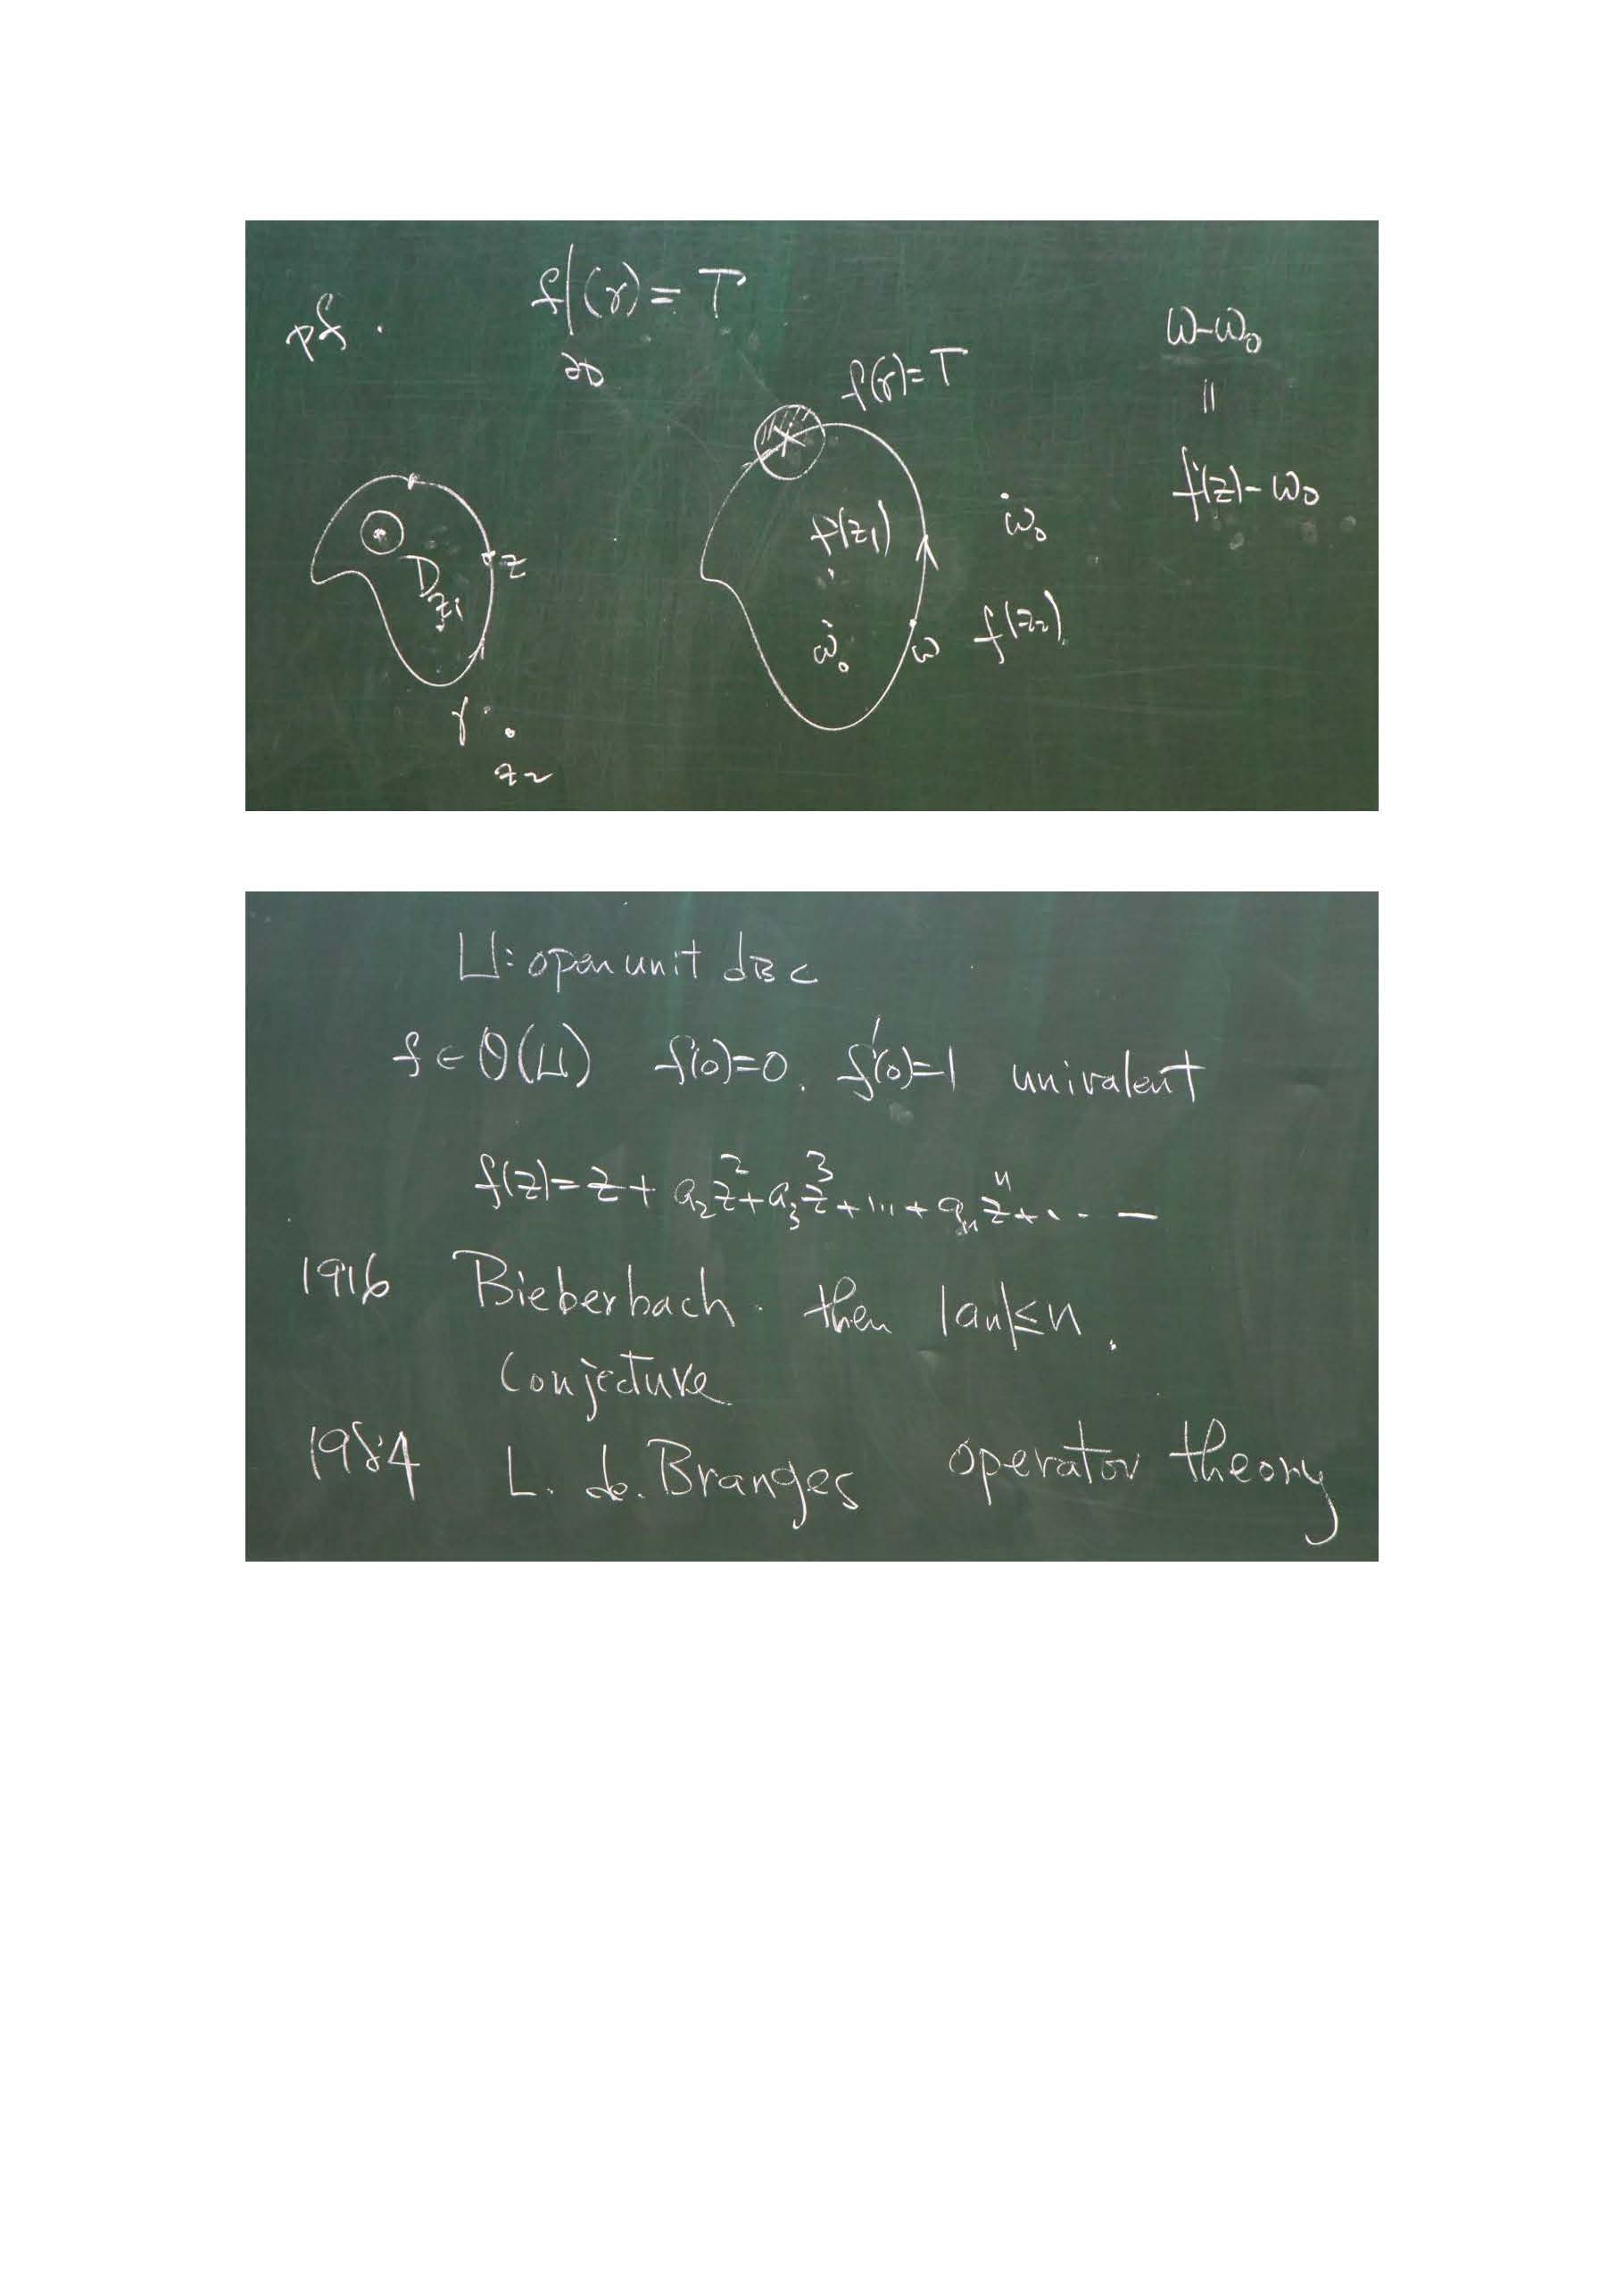 pf.
f|(γ) = T
∂D
f(γ)=T
ω-ω₀
॥
f(z)-ω₀
f(z₁)
ω₀
z
D
z₁
ω₀
ω
f(z₂)
γ
z₂
U: open unit disc
f ∈ O(U) f(0)=0. f'(0)=1 univalent
f(z)=z+a₂z²+a₃z³+...+aₙzⁿ+...
1916 Bieberbach. then |aₙ|≤n.
Conjecture
1984 L. de. Branges operator theory